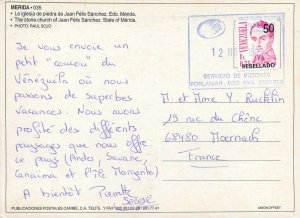 MERIDA • 035
• La iglesia de piedra de Juan Félix Sánchez, Edo. Mérida.
• The stone church of Juan Félix Sánchez, State of Mérida.
• PHOTO: RAUL SOJO
Je vous envoie un
petit "coucou" du
Vénézuela où nous
passons de superbes
vacances. Nous avons
profité des différents
paysages que nous offre
ce pays (Ando, Savane,
Canaima et l'île Margarita)
A bientôt Pierrette
Serge
VENEZUELA
50
RESELLADO
12 NOV
SERVICIO DE BUZONES
PORLAMAR - EDO. NVA. ESPARTA
M. et Mme Y. Ruchlin
19 rue du Chêne
68480 Moernach
France
PUBLICACIONES POSTALES CARIBE, C.A. TELFS.
UNION OFFSET